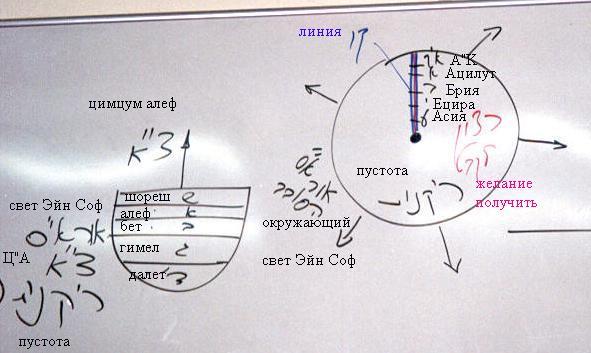 цимцум алеф
צ"א
шореш ש
алеф א
бет ב
гимел ג
далет ד
свет Эйн Соф
אור א"ס
Ц"А
צ"א
ריקנית
пустота
линия
קו
א"ק А"К
א Ацилут
ב Брия
י Ецира
ע Асия
пустота
ריקנית
רצון
לקבל
желание
получить
א"ס
אור
окружающий
свет Эйн Соф